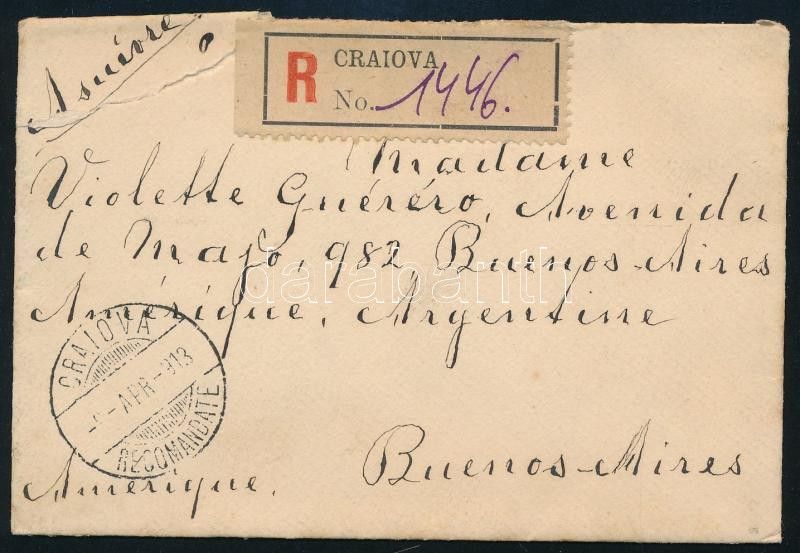 R
CRAIOVA
No. 1446.
Madame
Violette Guéréro, Avenida
de Mayo, 982 Buenos-Aires
Amérique, Argentine
darabanth
CRAIOVA
APR-913
RECOMANDATE
Buenos-Aires
Amérique.